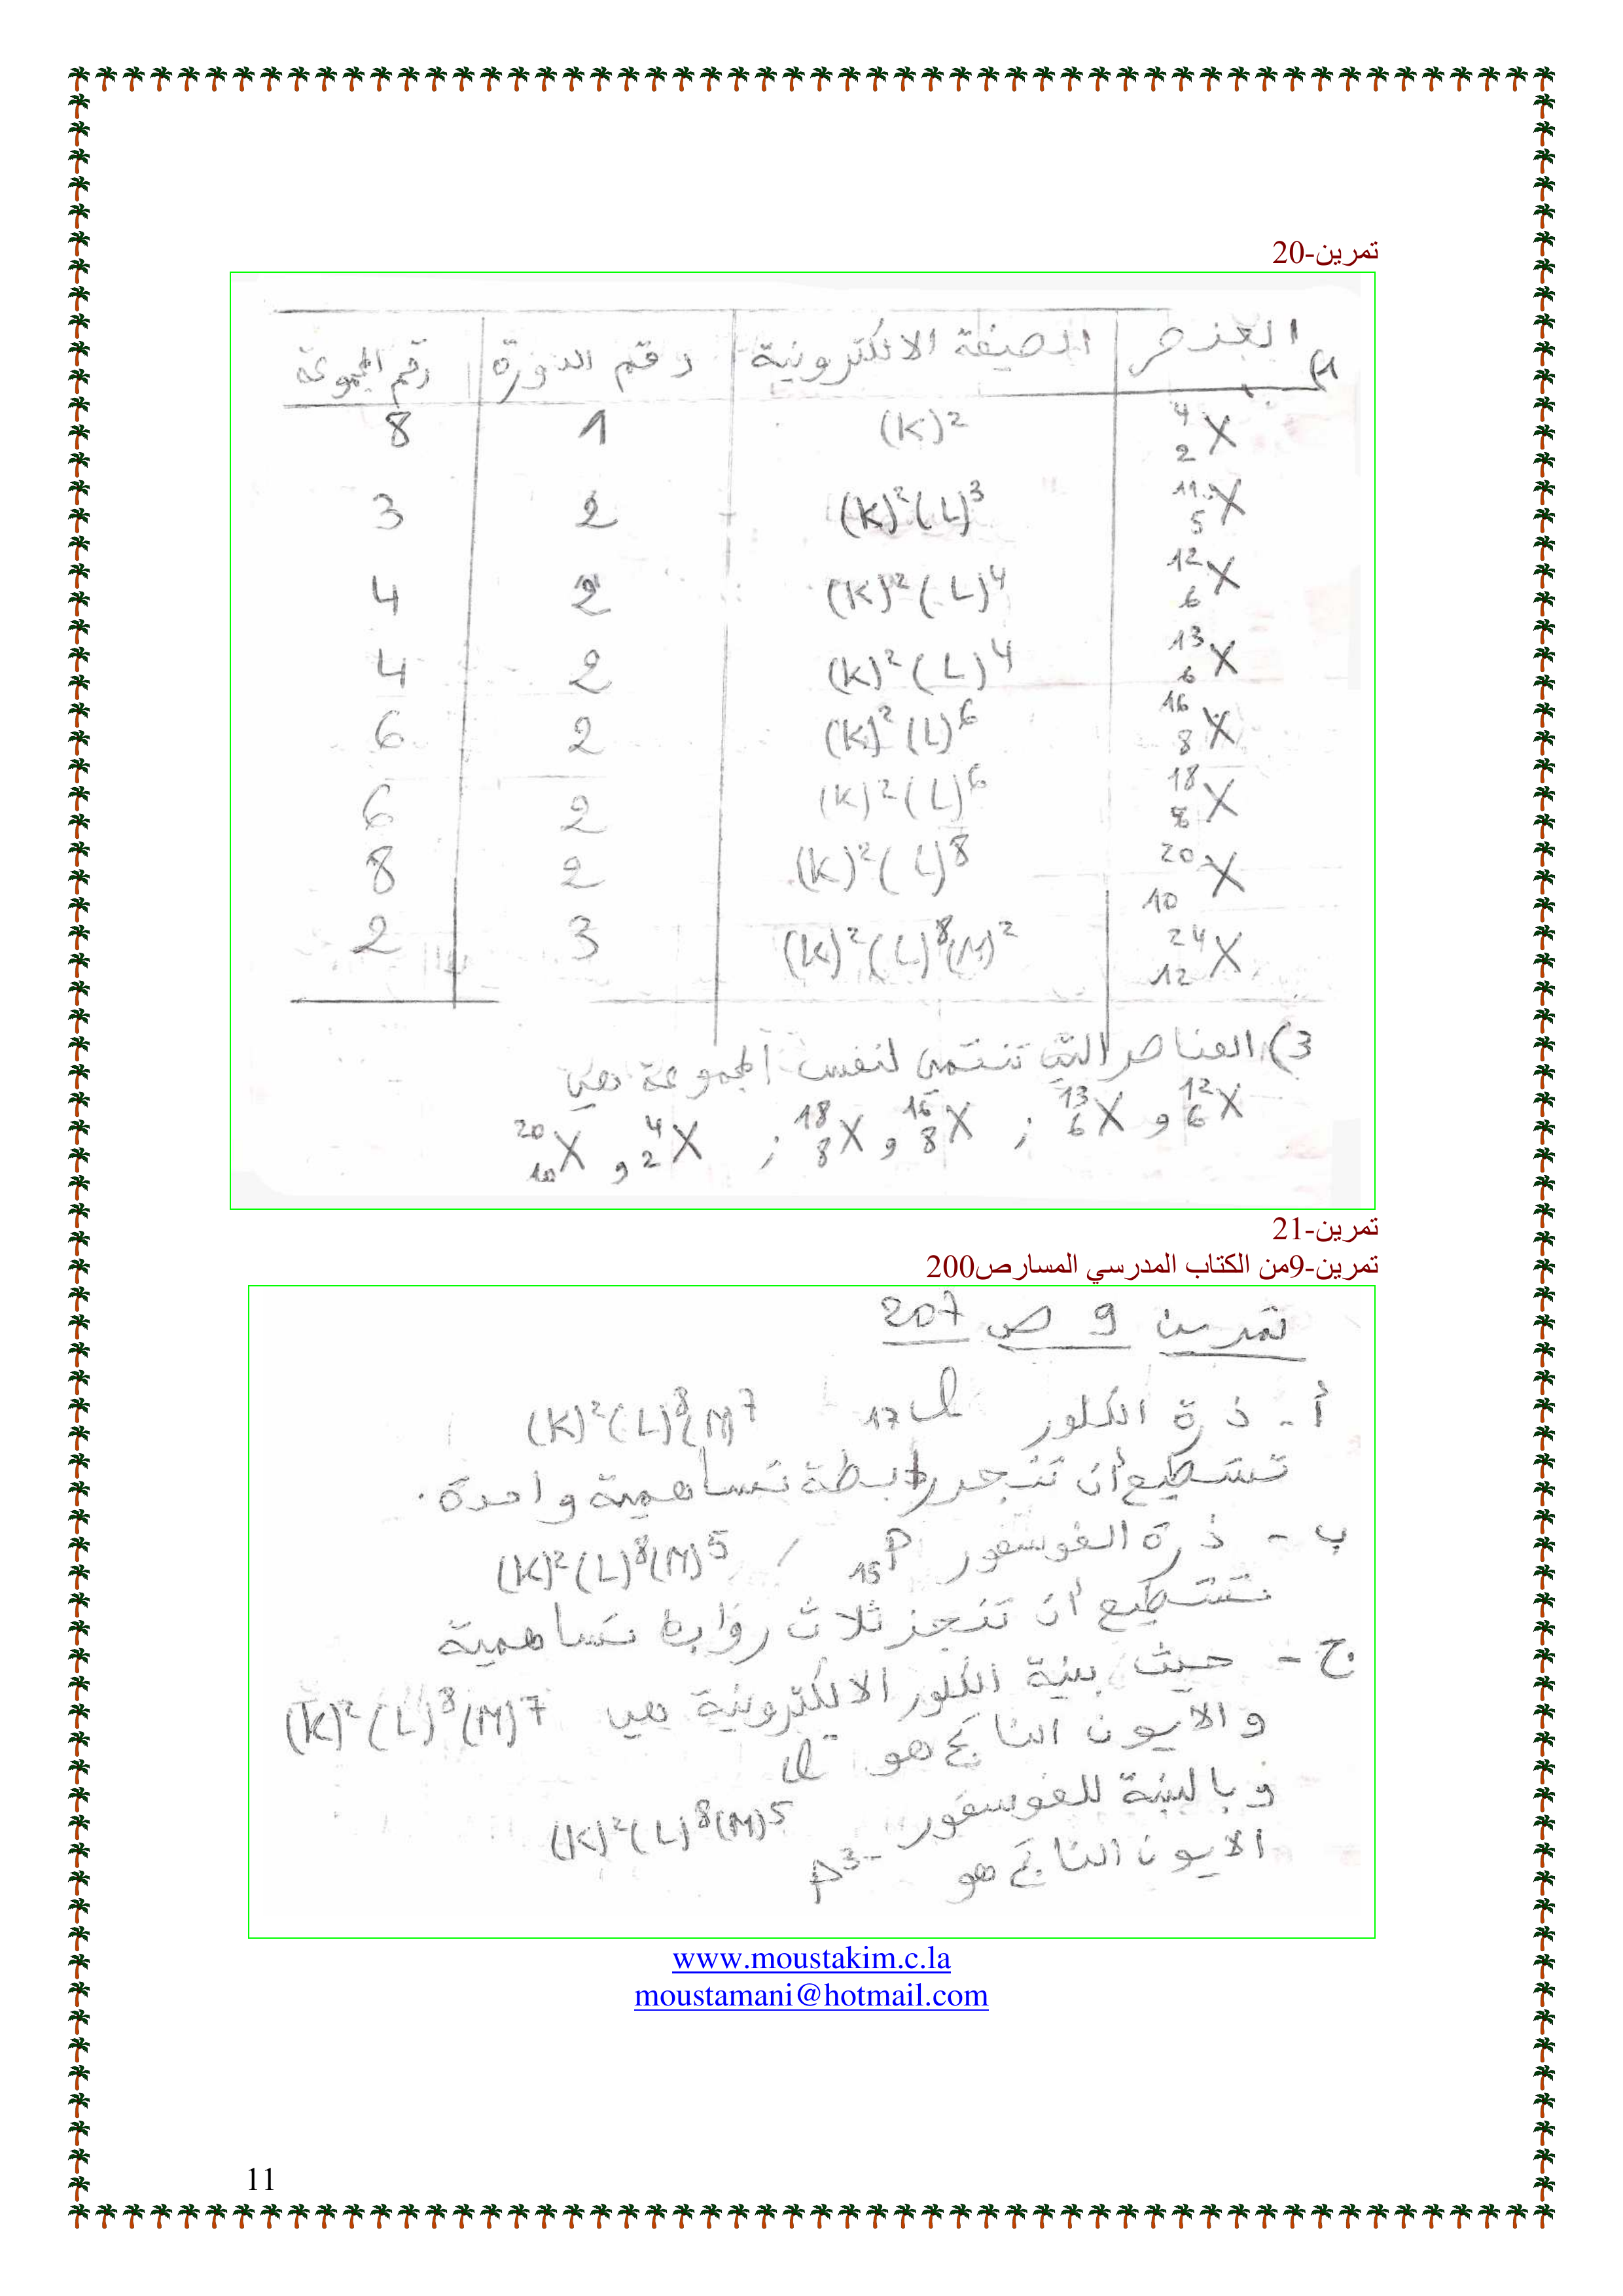 تمرين-20
1) العنصر | الصيغة الالكترونية | رقم الدورة | رقم المجموعة
⁴₂X | (K)² | 1 | 8
¹¹₅X | (K)²(L)³ | 2 | 3
¹²₆X | (K)²(L)⁴ | 2 | 4
¹³₆X | (K)²(L)⁴ | 2 | 4
¹⁶₈X | (K)²(L)⁶ | 2 | 6
¹⁸₈X | (K)²(L)⁶ | 2 | 6
²⁰₁₀X | (K)²(L)⁸ | 2 | 8
²⁴₁₂X | (K)²(L)⁸(M)² | 3 | 2
3) العناصر التي تنتمي لنفس المجموعة هي
¹²₆X و ¹³₆X ; ¹⁶₈X و ¹⁸₈X ; ⁴₂X و ²⁰₁₀X
تمرين-21
تمرين-9من الكتاب المدرسي المسارص200
تمرين 9 ص 207
أ - ذرة الكلور ₁₇Cl (K)²(L)⁸(M)⁷
تستطيع أن تنجز رابطة تساهمية واحدة.
ب - ذرة الفوسفور ₁₅P / (K)²(L)⁸(M)⁵
تستطيع أن تنجز ثلاث روابط تساهمية
ج - حيث بنية الكلور الالكترونية هي (K)²(L)⁸(M)⁷
والايون الناتج هو Cl⁻
وبالنسبة للفوسفور (K)²(L)⁸(M)⁵
الايون الناتج هو P³⁻
www.moustakim.c.la
moustamani@hotmail.com
11